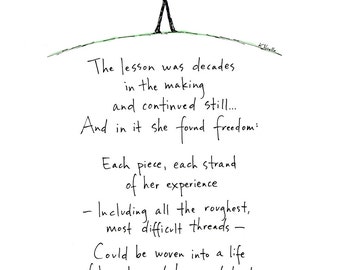 The lesson was decades
in the making
and continued still...
And in it she found freedom:
Each piece, each strand
of her experience
– Including all the roughest,
most difficult threads –
Could be woven into a life